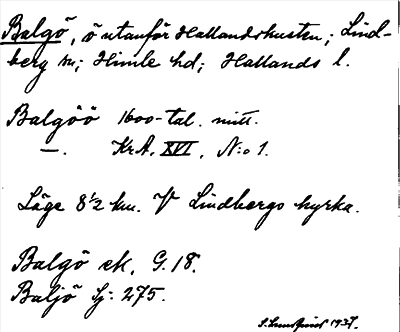 Balgö, ö utanför Hallandskusten; Lind-
berg sn; Himle hd; Hallands l.
Balgöö 1600-tal. mitt.
—. KrA. XVI, N:o 1.
Läge 8½ km. V Lindbergs kyrka.
Balgö ek. G. 18.
Baljö Sj: 275.
1937.